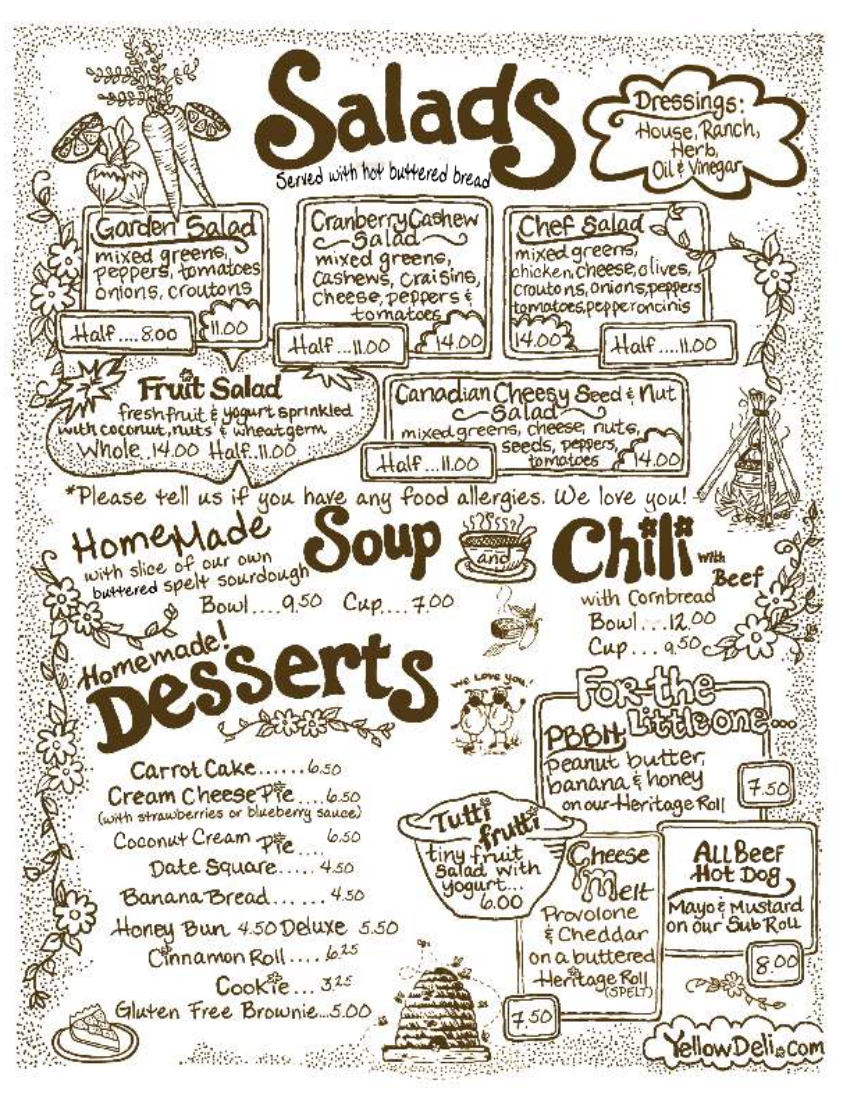 Salads
Served with hot buttered bread
Dressings:
House, Ranch,
Herb,
Oil & Vinegar
Garden Salad
mixed greens,
peppers, tomatoes
onions, croutons
Half ....8.00
11.00
Cranberry Cashew
Salad
mixed greens,
Cashews, Craisins,
cheese, peppers &
tomatoes
Half ...11.00
14.00
Chef Salad
mixed greens,
chicken, cheese, olives,
croutons, onions, peppers
tomatoes, pepperoncinis
14.00
Half ....11.00
Fruit Salad
fresh fruit & yogurt sprinkled
with coconut, nuts & wheat germ
Whole .14.00 Half.11.00
Canadian Cheesy Seed & Nut
Salad
mixed greens, cheese, nuts,
seeds, peppers,
tomatoes
Half...11.00
14.00
*Please tell us if you have any food allergies. We love you!
HomeMade
with slice of our own
buttered spelt sourdough
Soup
and
Bowl....9.50 Cup....7.00
Chili with
Beef
with Cornbread
Bowl...12.00
Cup... 9.50
Homemade!
Desserts
Carrot Cake......6.50
Cream Cheese Pie ....6.50
(with strawberries or blueberry sauce)
Coconut Cream Pie .... 6.50
Date Square..... 4.50
Banana Bread...... 4.50
Honey Bun 4.50 Deluxe 5.50
Cinnamon Roll .... 6.25
Cookie... 3.25
Gluten Free Brownie...5.00
We Love you!
For the
Little one...
PBBH
Peanut butter,
banana & honey
on our Heritage Roll
7.50
Tutti
frutti
tiny fruit
Salad with
yogurt...
6.00
Cheese
Melt
Provolone
& Cheddar
on a buttered
Heritage Roll
(SPELT)
7.50
All Beef
Hot Dog
Mayo & Mustard
on our Sub Roll
8.00
YellowDeli.com